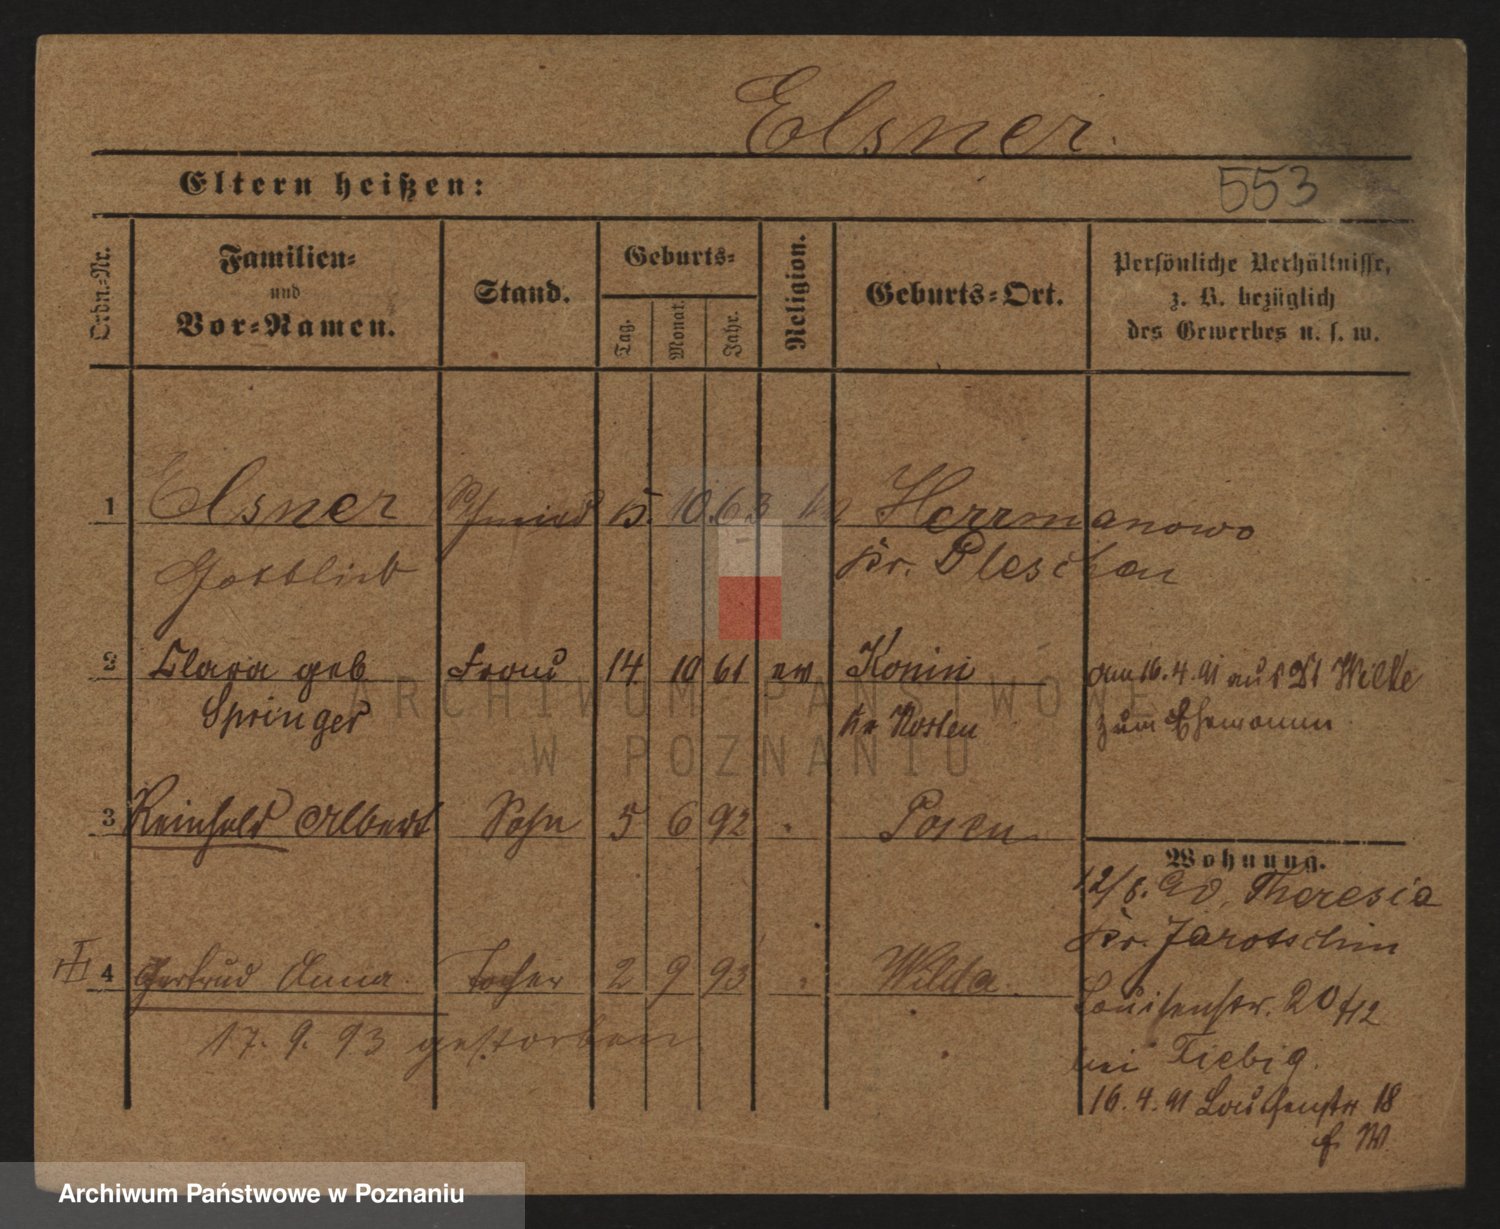 Elsner.
Eltern heißen:
553
Ordn.-Nr.
Familien-
und
Vor-Namen.
Stand.
Geburts-
Tag.
Monat.
Jahr.
Religion.
Geburts-Ort.
Persönliche Verhältnisse,
z. B. bezüglich
des Gewerbes u. s. w.
1 Elsner Schmied 15. 10. 63 Herrmanowo
Gottlieb Kr. Pleschen
2 Clara geb Frau 14 10 61 ev Konin am 16.4.91 aus Wilke
Springer Kr Kosten zum Ehemann
3 Reinhold Albert Sohn 5 6 92 Posen
Wohnung.
12/8. Theresia
Kr. Jarotschin
4 Gertrud Anna Tochter 2 9 93 Wilda.
Louisenstr. 20
17. 9. 93 gestorben.
bei Fiebig.
16.4.91 Louisenstr 18
ARCHIWUM PAŃSTWOWE
W POZNANIU
Archiwum Państwowe w Poznaniu